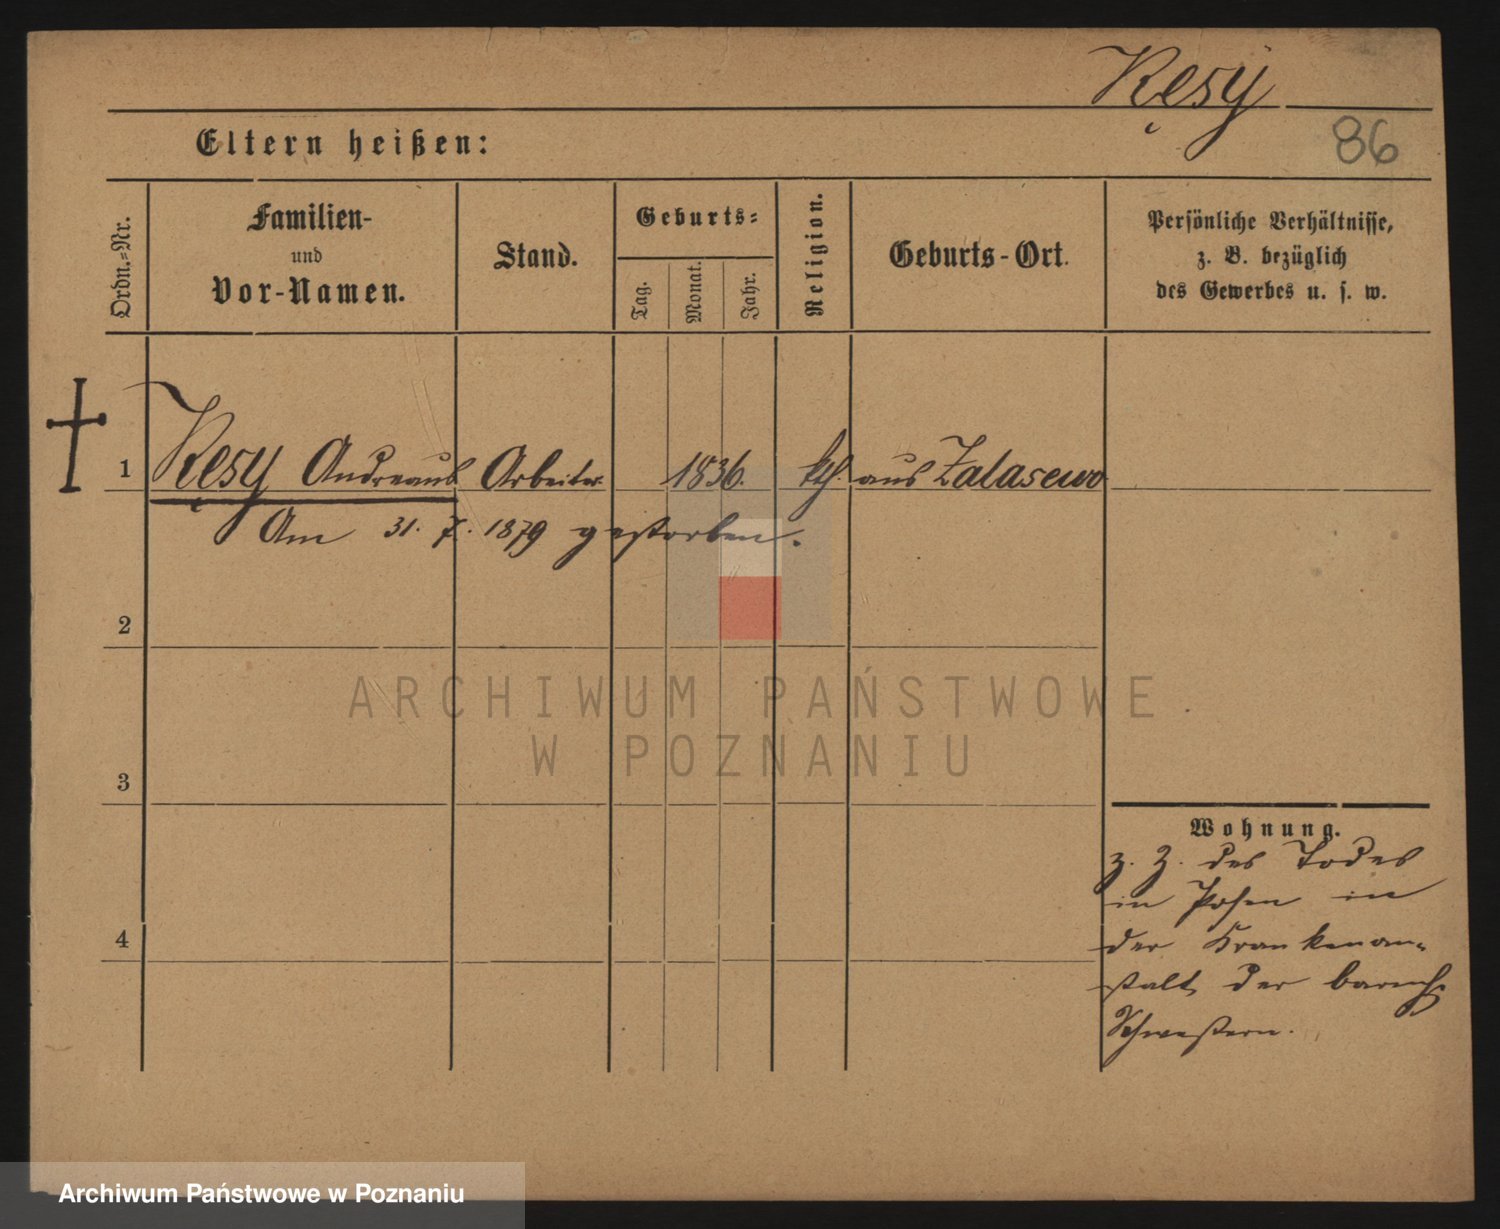 Kęsy
86
Eltern heißen:
Ordn.=Nr.
Familien-
und
Vor-Namen.
Stand.
Geburts=
Tag.
Monat.
Jahr.
Religion.
Geburts-Ort.
Persönliche Verhältnisse,
z. B. bezüglich
des Gewerbes u. s. w.
1 Kęsy Andreaus Arbeiter 1836. kth. aus Zalasewo
Am 31. 7. 1879 gestorben.
2
ARCHIWUM PAŃSTWOWE
W POZNANIU
3
Wohnung.
z. Z. des Todes
in Posen in
4
der Krankenan=
stalt der barmh
Schwestern.
Archiwum Państwowe w Poznaniu